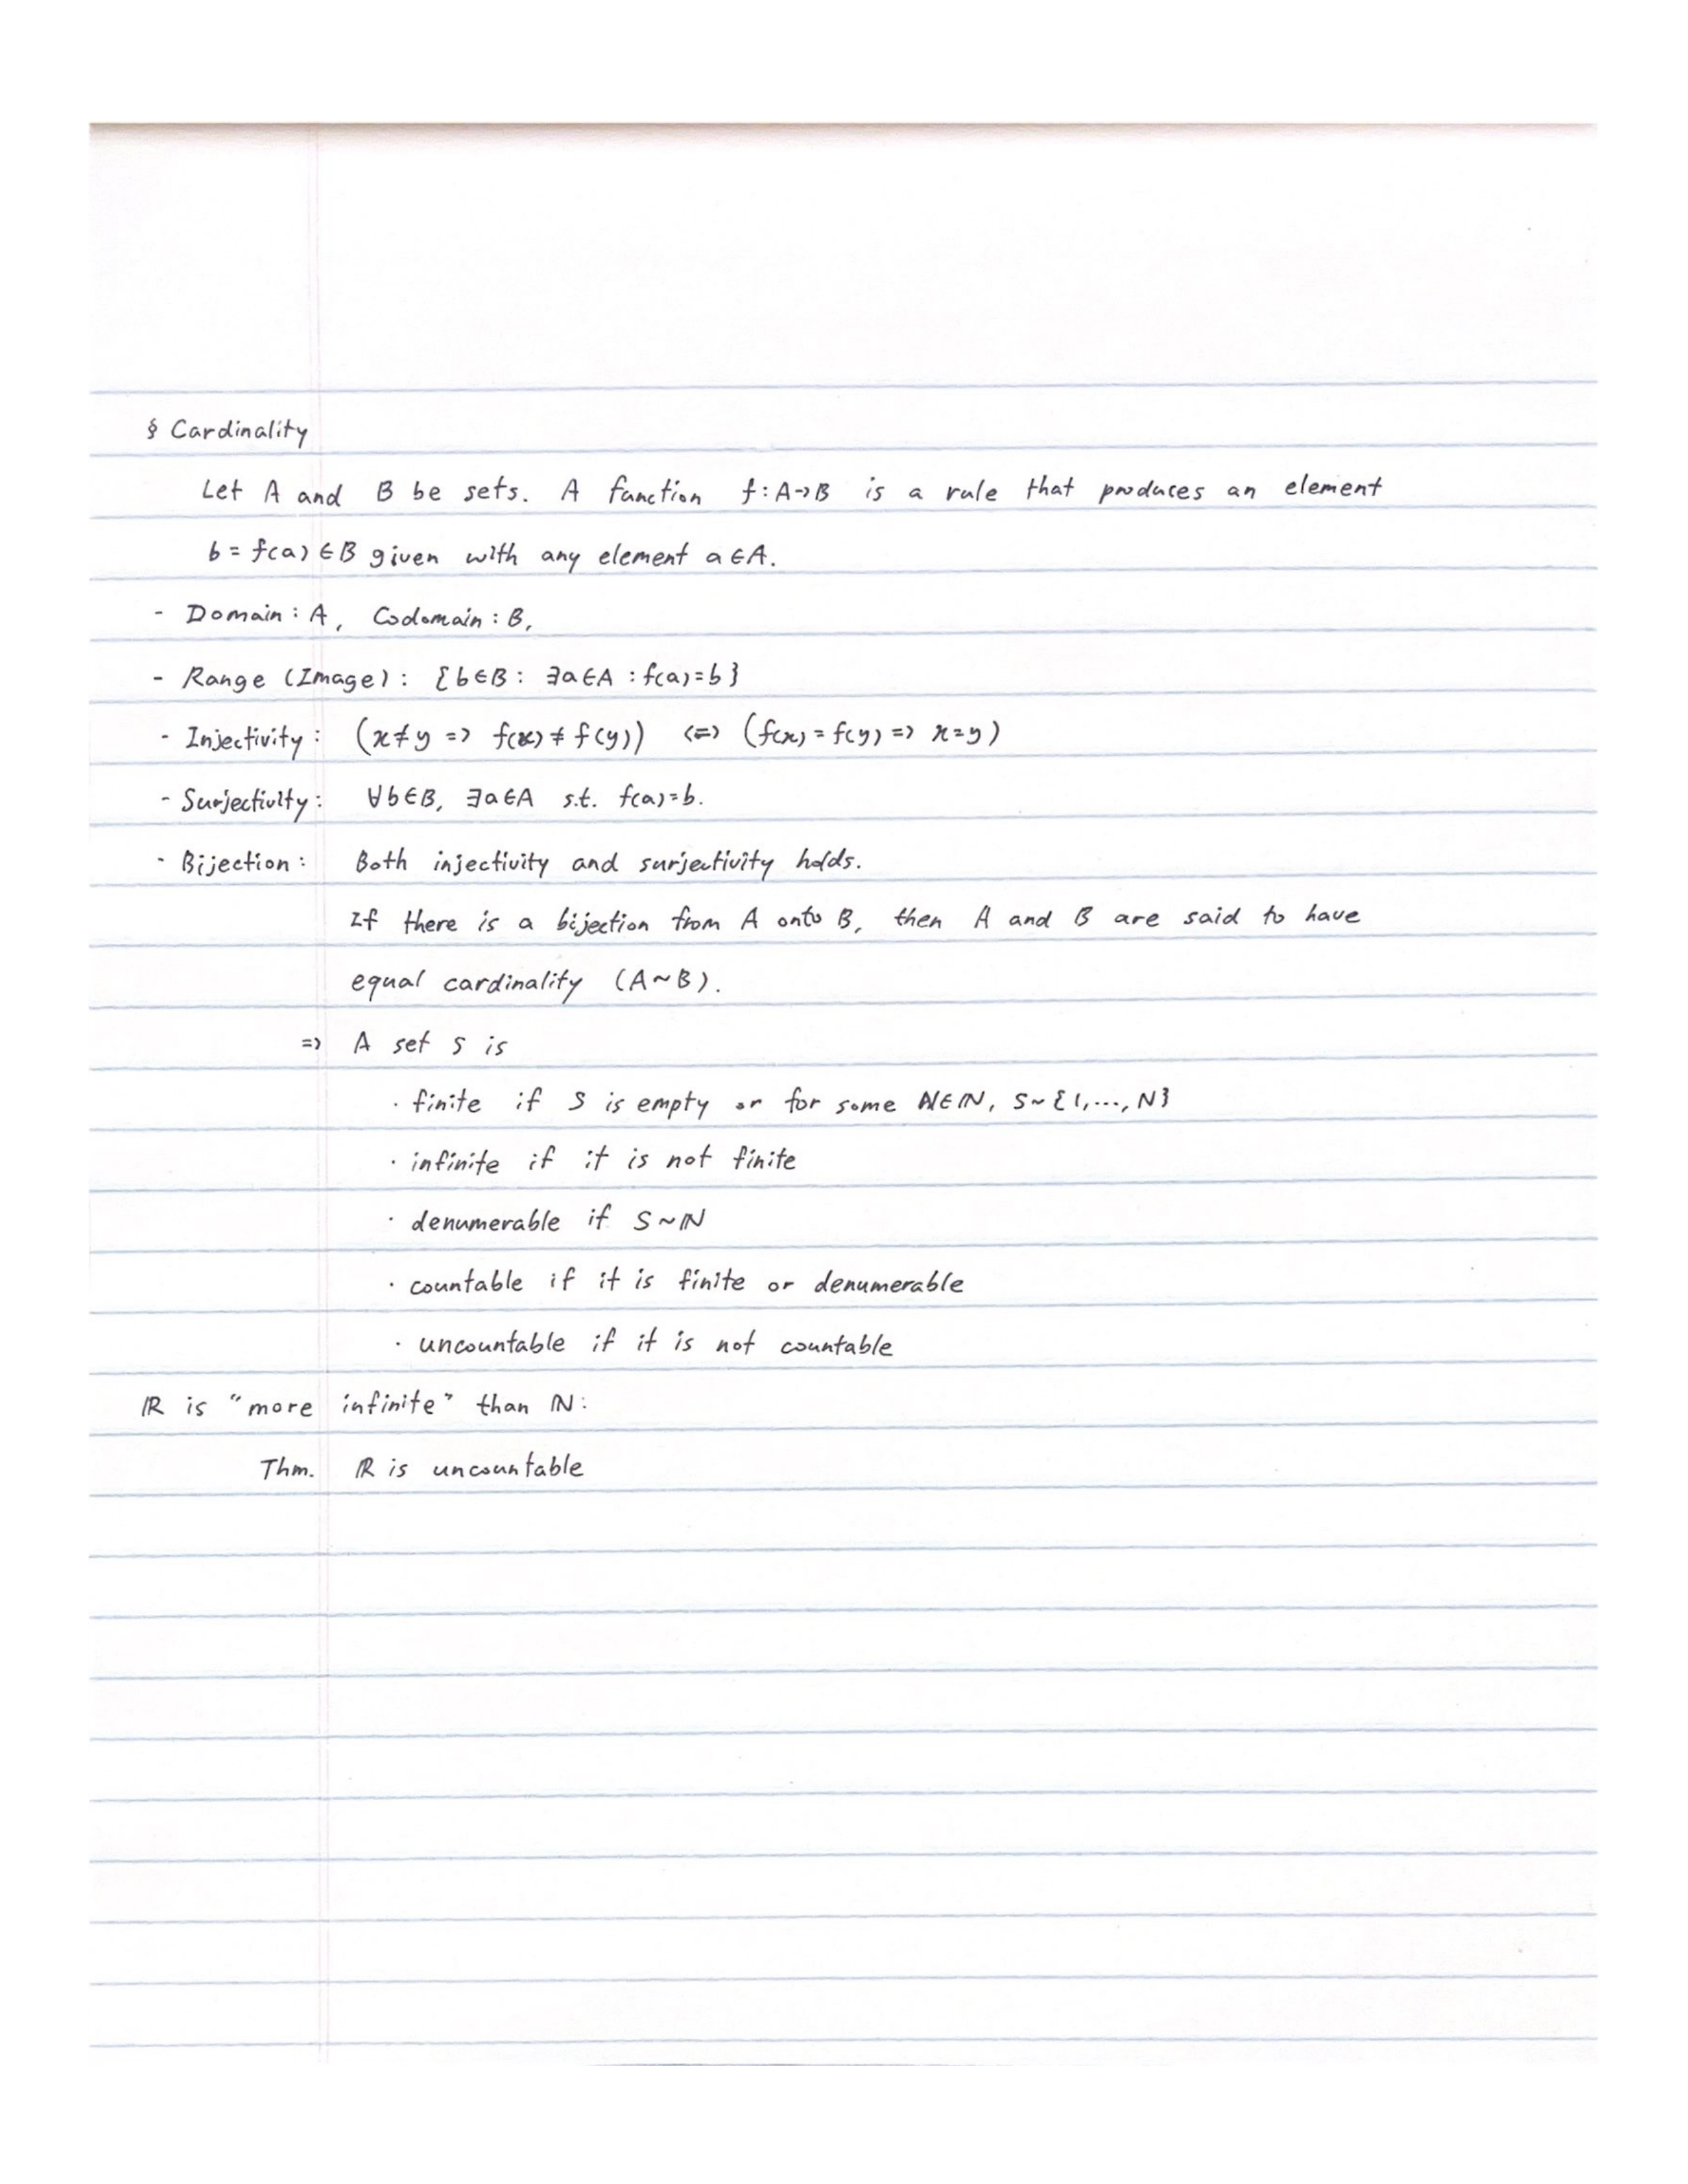 § Cardinality
Let A and B be sets. A function f:A→B is a rule that produces an element
b = f(a) ∈ B given with any element a ∈ A.
- Domain : A, Codomain : B,
- Range (Image) : {b∈B : ∃a∈A : f(a)=b}
- Injectivity : (x≠y => f(x) ≠ f(y)) <=> (f(x) = f(y) => x=y)
- Surjectivity : ∀b∈B, ∃a∈A s.t. f(a)=b.
- Bijection : Both injectivity and surjectivity holds.
If there is a bijection from A onto B, then A and B are said to have
equal cardinality (A~B).
=> A set S is
· finite if S is empty or for some N∈ℕ, S~{1,...,N}
· infinite if it is not finite
· denumerable if S~ℕ
· countable if it is finite or denumerable
· uncountable if it is not countable
ℝ is "more infinite" than ℕ :
Thm. ℝ is uncountable